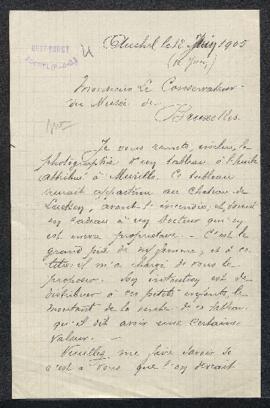 Auchel le 12 Juin 1905
Monsieur Le Conservateur
du Musée de
Bruxelles
Je vous remets, incluse, la
photographie d'un tableau à l'huile
attribué à Murillo. Ce tableau
aurait appartenu au Château de
Laeken, avant l'incendie, et, donné
en cadeau à un docteur qui en
est encore propriétaire. C'est le
grand père de ma femme, et à ce
titre, il m'a chargé de vous le
proposer. Son intention est de
distribuer à ses petits enfants, le
montant de la vente de ce tableau
qu'il dit avoir une certaine
valeur.
Veuillez me faire savoir si
c'est à vous que l'on devrait